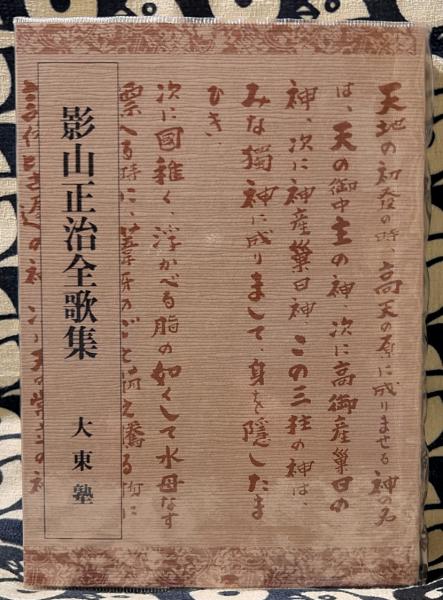 影山正治全歌集
大東塾
天地の初發の時、高天の原に成りませる神の名
は、天の御中主の神、次に高御産巣日の
神、次に神産巣日神、この三柱の神は、
みな獨神に成りまして、身を隱したま
ひき。
次に國稚く、浮かべる脂の如くして水母なす
漂へる時に、葦牙のごと萌え騰る物に